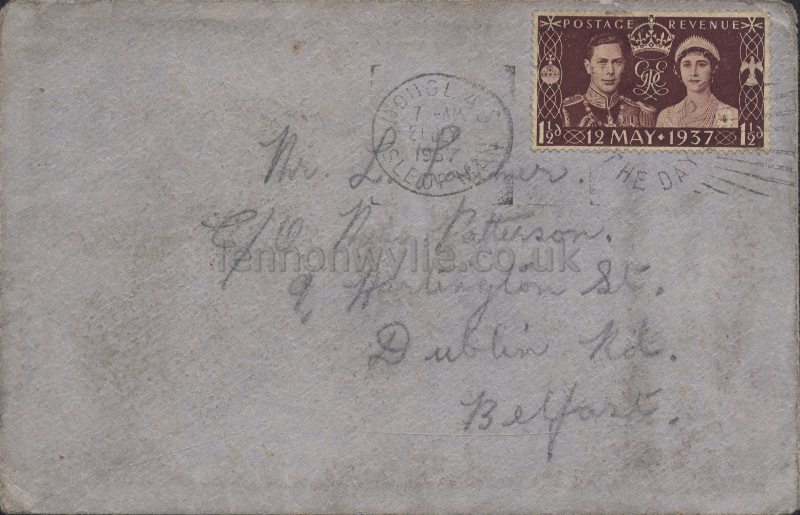 POSTAGE REVENUE
1½d 12 MAY • 1937 1½d
DOUGLAS
7 - AM
21
1937
ISLE OF MAN
THE DAY
Mr. L.
C/O Patterson.
9 Harlington St.
Dublin Rd.
Belfast.
lennonwylie.co.uk